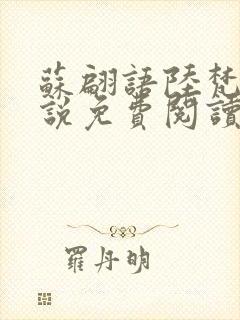 蘇翩語陸梵
說免費閱讀
羅丹明